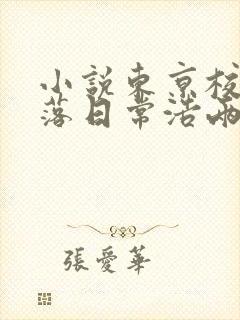 小說東京校
落日常活兩
張愛華